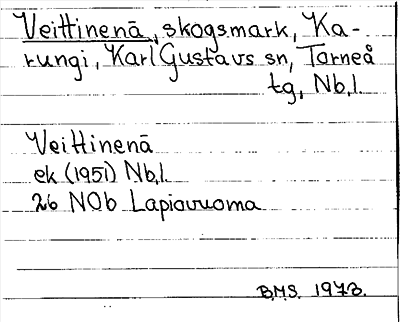 Veittinenä, skogsmark, Ka-
rungi, Karl Gustavs sn, Torneå
tg, Nb,l.
Veittinenä
ek (1951) Nb,l.
26 NOb Lapiovuoma
B.M.S. 1973.